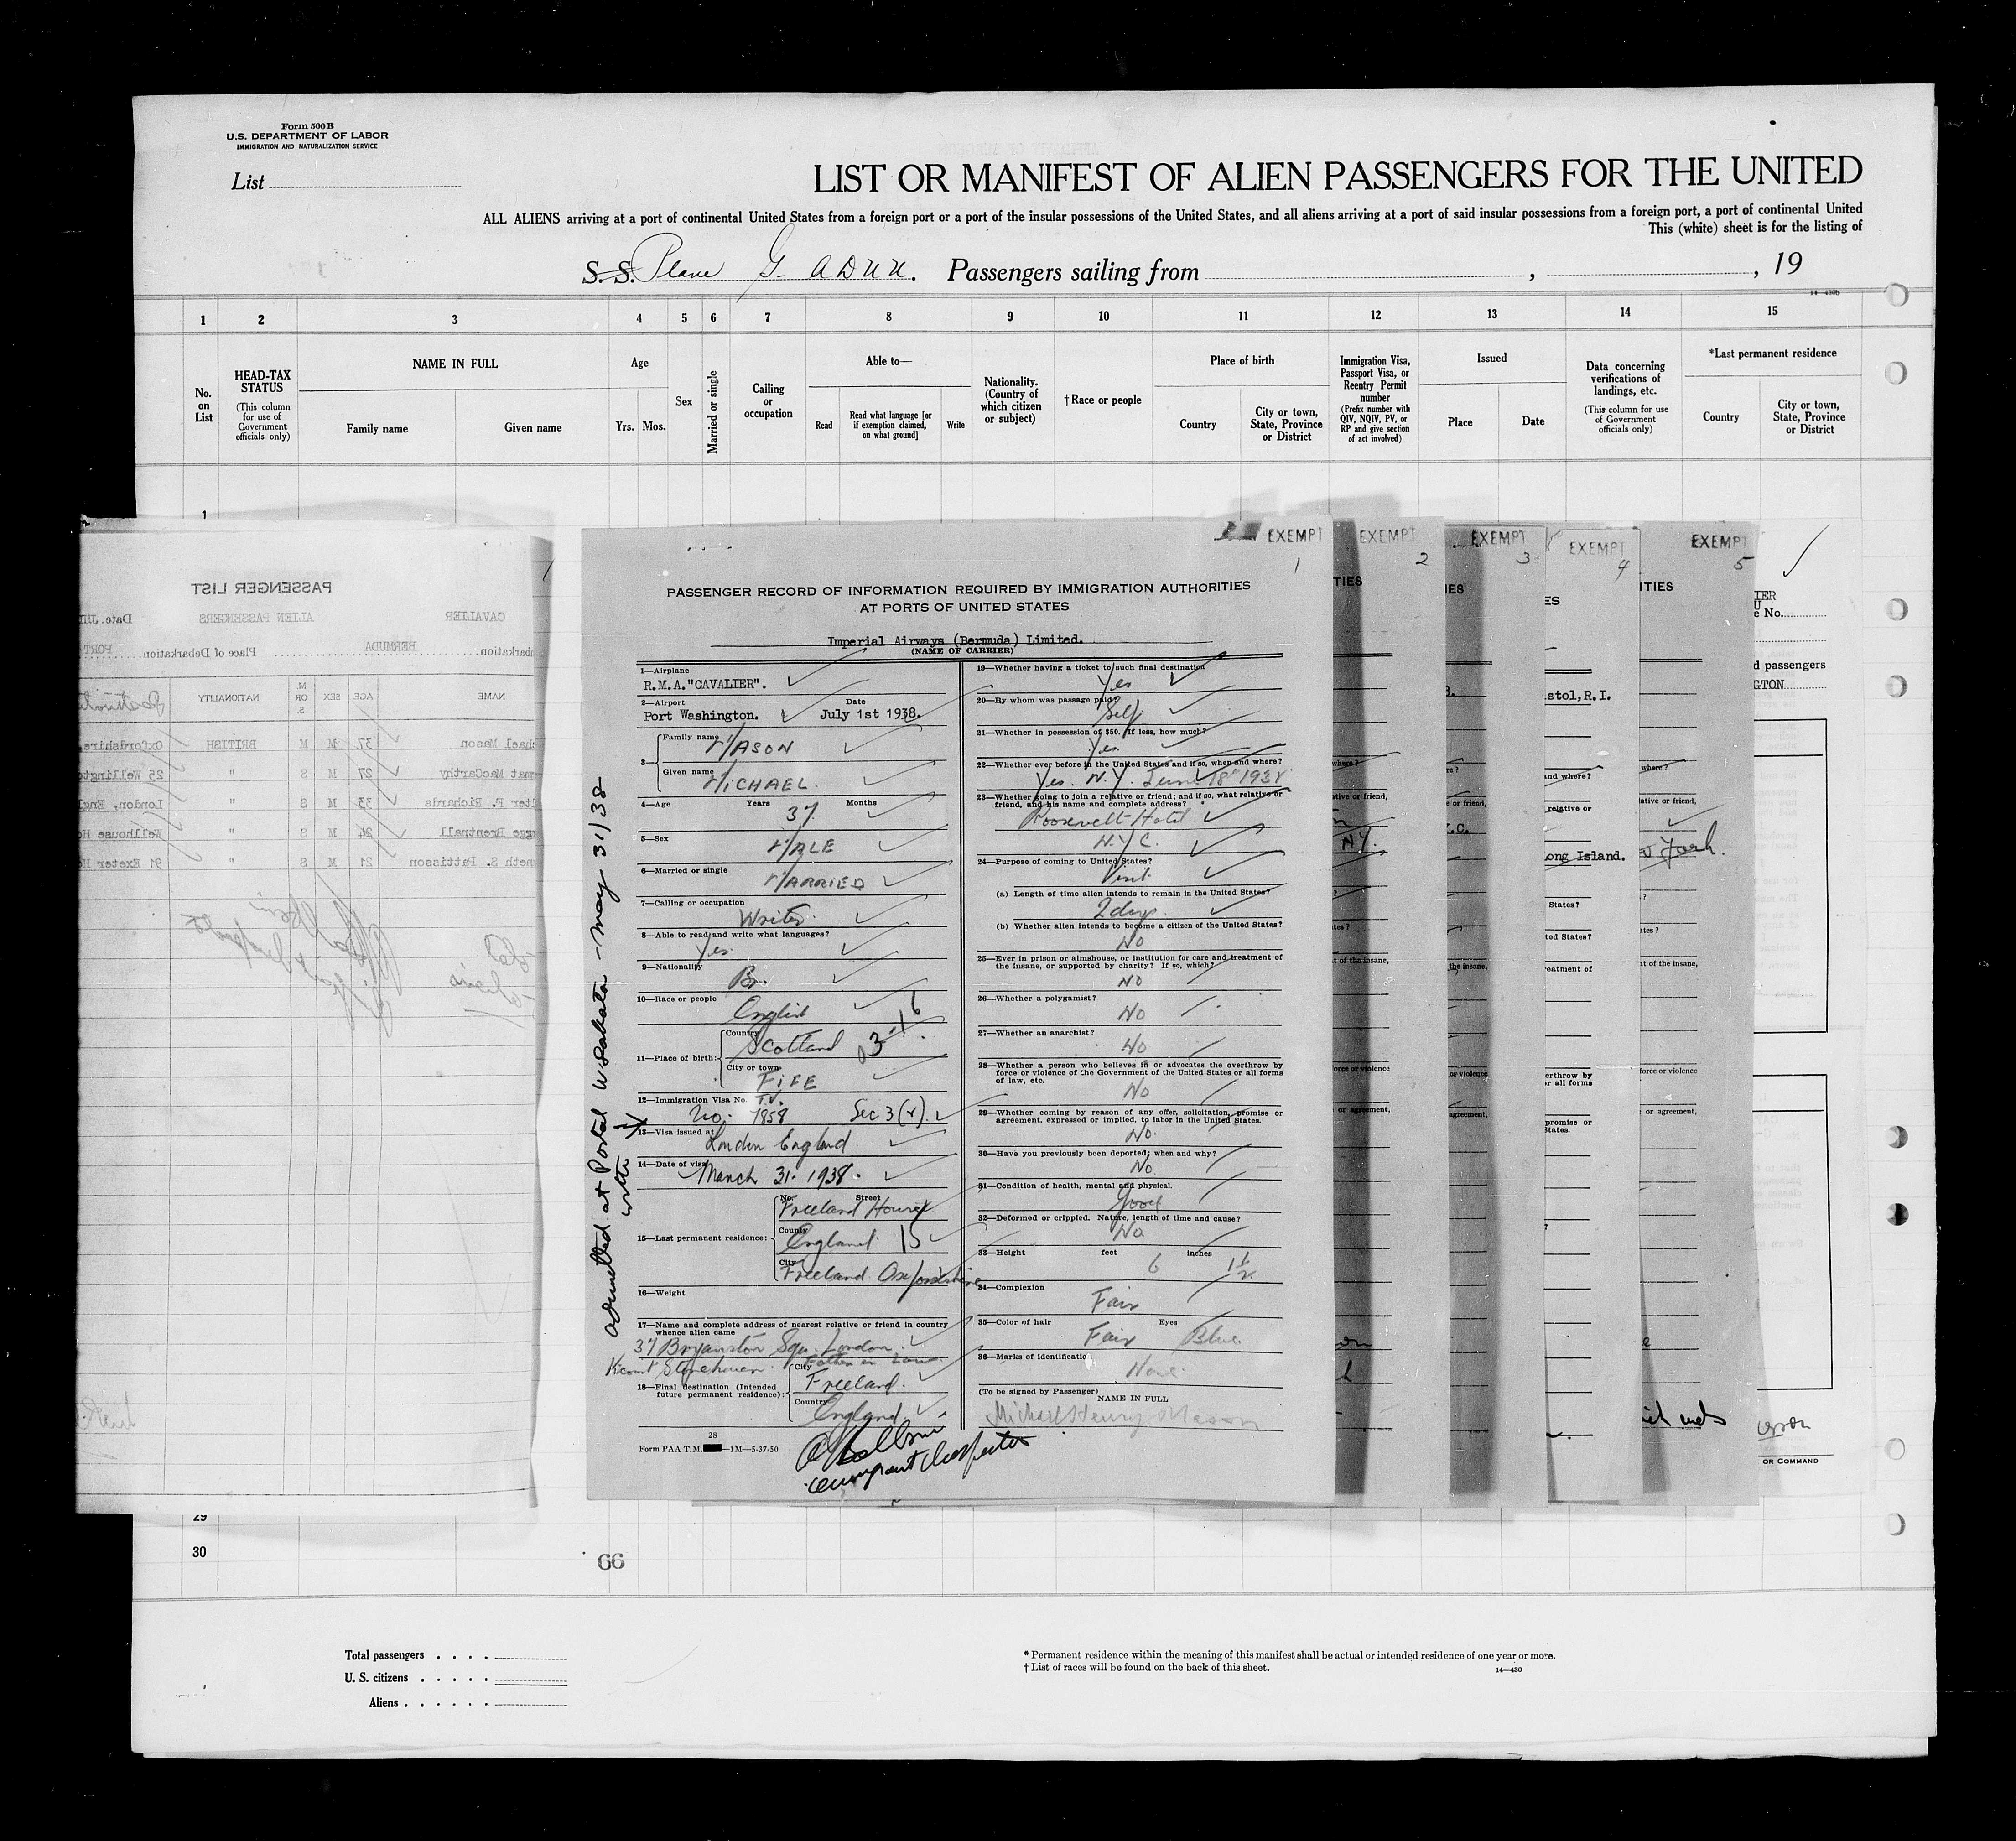 Form 500B
U.S. DEPARTMENT OF LABOR
IMMIGRATION AND NATURALIZATION SERVICE
List
LIST OR MANIFEST OF ALIEN PASSENGERS FOR THE UNITED
ALL ALIENS arriving at a port of continental United States from a foreign port or a port of the insular possessions of the United States, and all aliens arriving at a port of said insular possessions from a foreign port, a port of continental United
This (white) sheet is for the listing of
S.S. Plane G ADUU. Passengers sailing from , , 19
14—430b
1 2 3 4 5 6 7 8 9 10 11 12 13 14 15
No. on List
HEAD-TAX STATUS
(This column for use of Government officials only)
NAME IN FULL
Family name Given name
Age
Yrs. Mos.
Sex
Married or single
Calling or occupation
Able to—
Read
Read what language [or if exemption claimed, on what ground]
Write
Nationality. (Country of which citizen or subject)
†Race or people
Place of birth
Country
City or town, State, Province or District
Immigration Visa, Passport Visa, or Reentry Permit number
(Prefix number with QIV, NQIV, PV, or RP and give section of act involved)
Issued
Place Date
Data concerning verifications of landings, etc.
(This column for use of Government officials only)
*Last permanent residence
Country
City or town, State, Province or District
1
PASSENGER LIST
CAVALIER ALIEN PASSENGERS Date.
BERMUDA Place of Debarkation PORT
NAME AGE SEX M. OR S. NATIONALITY
hael Mason 37 M M BRITISH Oxfordshire
mat MacCarthy 27 M S " 25 Wellingto
lter F. Richards 33 M S " London, Engl
rge Brentnall 24 M S " Wellhouse H
neth S. Pattisson 21 M S " 91 Exeter H
EXEMPT
1
PASSENGER RECORD OF INFORMATION REQUIRED BY IMMIGRATION AUTHORITIES
AT PORTS OF UNITED STATES
Imperial Airways (Bermuda) Limited.
(NAME OF CARRIER)
1—Airplane
R.M.A."CAVALIER".
2—Airport Date
Port Washington. July 1st 1938.
3— Family name MASON
Given name MICHAEL.
4—Age Years Months
37
5—Sex
MALE
6—Married or single
MARRIED
7—Calling or occupation
Writer.
8—Able to read and write what languages?
Yes.
9—Nationality
Br.
10—Race or people
English
11—Place of birth: Country
Scotland
City or town
FIFE
12—Immigration Visa No. T.V.
No. 7858 Sec 3(2).
13—Visa issued at
London England
14—Date of visa
March 31. 1938.
15—Last permanent residence: No. Street
Freeland House
County
England 15
City
Freeland. Oxfordshire
16—Weight
17—Name and complete address of nearest relative or friend in country whence alien came
37 Bryanston Squ. London.
Father in Law
18—Final destination (Intended future permanent residence): City
Freeland.
Country
England.
28
Form PAA T.M. —1M—5-37-50
Immigrant Inspector
admitted at Portal W. Dakota - May 31/38
19—Whether having a ticket to such final destination
Yes
20—By whom was passage paid?
Self
21—Whether in possession of $50. If less, how much?
Yes.
22—Whether ever before in the United States and if so, when and where?
Yes. N.Y. June 18th 1938
23—Whether going to join a relative or friend; and if so, what relative or friend, and his name and complete address?
Roosevelt Hotel
N.Y.C.
24—Purpose of coming to United States?
Visit
(a) Length of time alien intends to remain in the United States?
2 days.
(b) Whether alien intends to become a citizen of the United States?
No
25—Ever in prison or almshouse, or institution for care and treatment of the insane, or supported by charity? If so, which?
No
26—Whether a polygamist?
No
27—Whether an anarchist?
No
28—Whether a person who believes in or advocates the overthrow by force or violence of the Government of the United States or all forms of law, etc.
No
29—Whether coming by reason of any offer, solicitation, promise or agreement, expressed or implied, to labor in the United States.
No.
30—Have you previously been deported; when and why?
No.
31—Condition of health, mental and physical.
Good
32—Deformed or crippled. Nature, length of time and cause?
No.
33—Height feet inches
6 1½
34—Complexion
Fair
35—Color of hair Eyes
Fair Blue.
36—Marks of identification
None.
(To be signed by Passenger)
NAME IN FULL
Michael Henry Mason
EXEMPT
2
TIES
N.Y.
EXEMPT
3
IES
EXEMPT
4
ES
stol,R.I.
ong Island.
EXEMPT
5
ITIES
York.
e No.
d passengers
GTON
OR COMMAND
29
30
66
Total passengers
U. S. citizens
Aliens
* Permanent residence within the meaning of this manifest shall be actual or intended residence of one year or more.
† List of races will be found on the back of this sheet.
14—430